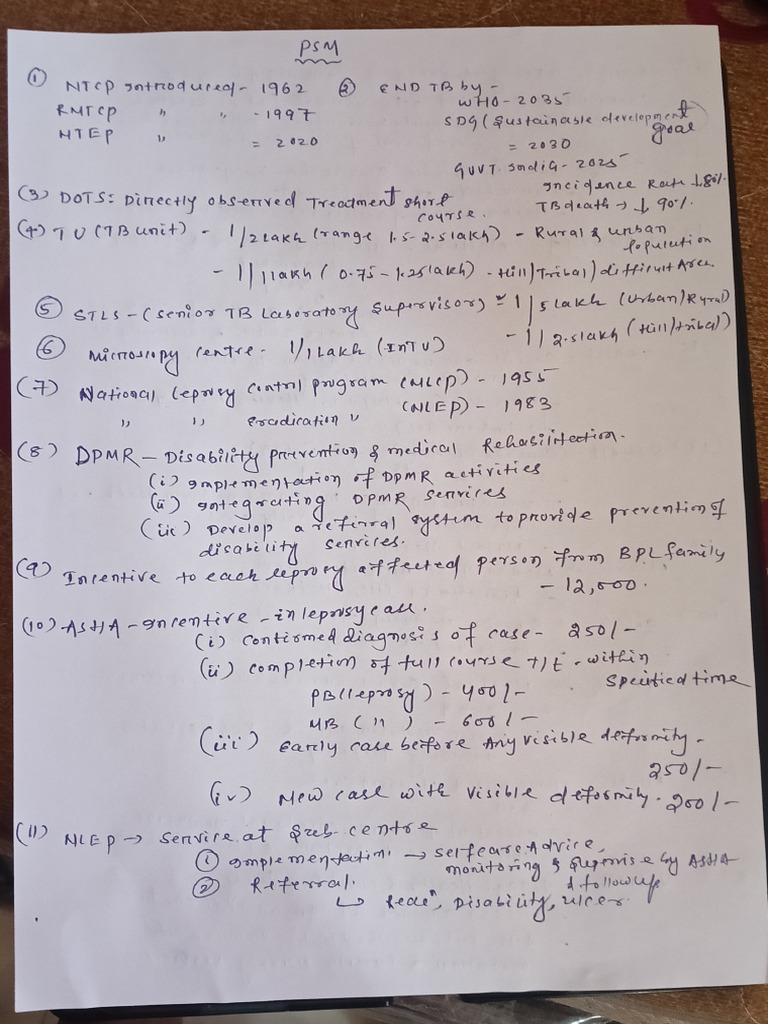 PSM
① NTCP introduced - 1962
RNTCP " " - 1997
NTEP " = 2020
② END TB by -
WHO - 2035
SDG (Sustainable development goal
= 2030
GUVT. India - 2025
Incidence Rate ↓ 80%
TB death → ↓ 90%
(3) DOTS: Directly observed Treatment short course.
(4) TU (TB unit) - 1/2 Lakh (range 1.5-2.5 lakh) - Rural & urban population
- 1/1 lakh (0.75 - 1.25 lakh) - Hill/Tribal/difficult Area
⑤ STLS - (Senior TB Laboratory Supervisor) = 1/5 Lakh (Urban/Rural)
- 1/2.5 lakh (Hill/tribal)
⑥ Microscopy centre - 1/1 Lakh (In TU)
(7) National Leprosy control program (NLCP) - 1955
" " Eradication " (NLEP) - 1983
(8) DPMR - Disability prevention & medical Rehabilitation.
(i) Implementation of DPMR activities
(ii) Integrating DPMR services
(iii) Develop a referral system to provide prevention of
disability services.
(9) Incentive to each leprosy affected person from BPL family
- 12,000.
(10) ASHA - Incentive - in leprosy case.
(i) confirmed diagnosis of case - 250/-
(ii) completion of full course T/t - within
specified time
PB (leprosy) - 400/-
MB ( " ) - 600/-
(iii) Early case before Any visible deformity -
250/-
(iv) New case with visible deformity - 200/-
(11) NLEP → Service at Sub centre
① Implementation: → selfcare Advice,
monitoring & supervise by ASHA
& followup
② Referral.
↳ Disability, ulcer.